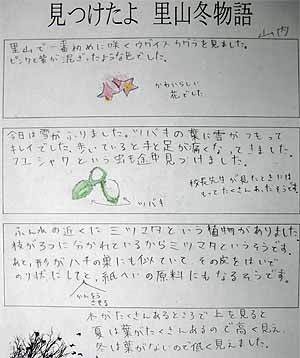 見つけたよ 里山冬物語
山内
里山で一番初めに咲くウグイスカグラを見ました。
ピンクと紫が混ざったような色でした。
かわいらしい
花でした
今日は雪がふりました。ツバキの葉に雪がつもって
キレイでした。歩いていると手と足が痛くなってきました。
フユシャクという虫を途中見つけました。
校長先生が見たときには
もってたくさんあったそうです。
ツバキ
ふん水の近くにミツマタという植物がありました。
枝が3つに分かれているからミツマタというそうです。
あと、形がハチの巣にも似ていて、その皮をはいで
のり状にしてと、紙へいの原料にもなるそうです。
かんそう
させる
木がたくさんあるところで上を見ると
夏は葉がたくさんあるので高く見え、
冬は葉がないので低く見ました。